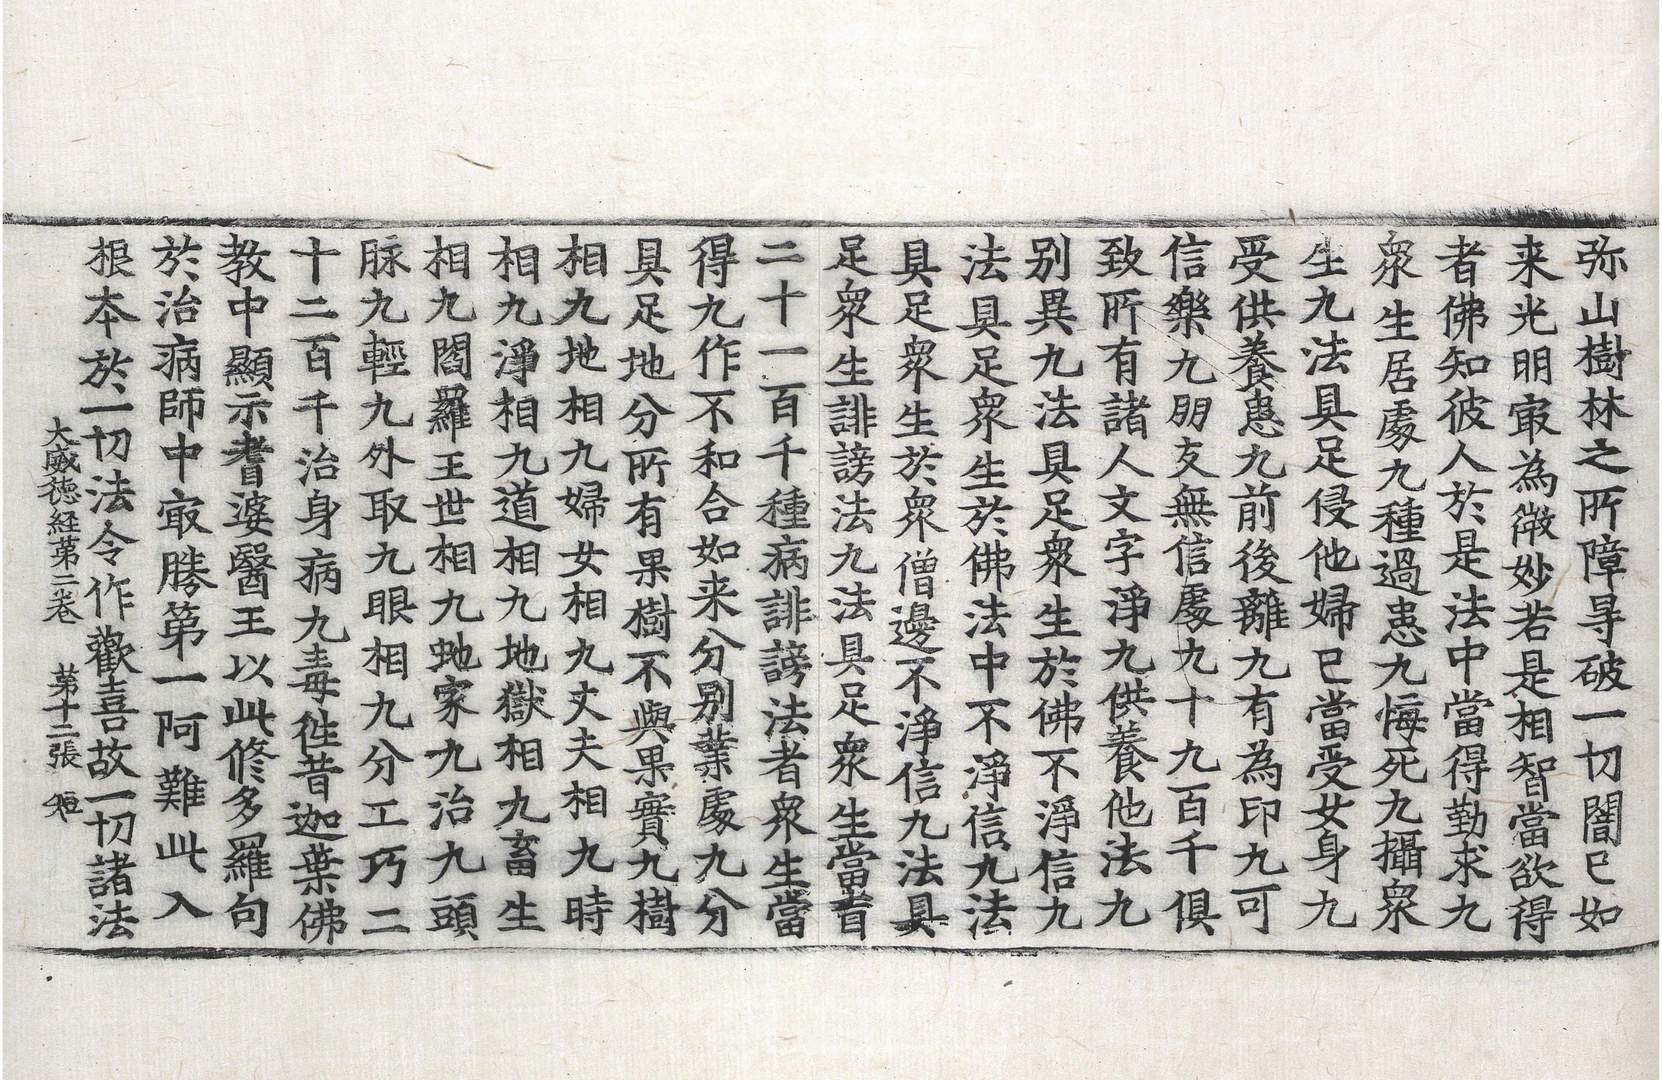 弥山樹林之所障㝵破一切闇已如
来光明㝡為㣲妙若是相智當欲得
者佛知彼人於是法中當得勤求九
衆生居處九種過患九悔死九攝衆
生九法具足侵他婦已當受女身九
受供養患九前後離九有為印九可
信樂九朋友無信處九十九百千俱
致所有諸人文字淨九供養他法九
别異九法具足衆生於佛不淨信九
法具足衆生於佛法中不淨信九法
具足衆生於衆僧邊不淨信九法具
足衆生誹謗法九法具足衆生當盲
二十一百千種病誹謗法者衆生當
得九作不和合如来分别業處九分
具足地分所有果樹不與果實九樹
相九地相九婦女相九丈夫相九時
相九淨相九道相九地獄相九畜生
相九閻羅王世相九虵家九治九頭
脉九輕九外取九眼相九分工巧二
十二百千治身病九毒徃昔迦葉佛
教中顯示耆婆醫王以此修多羅句
於治病師中㝡勝第一阿難此入
根本於一切法令作歡喜故一切諸法
大威徳経第二卷　第十二張　短